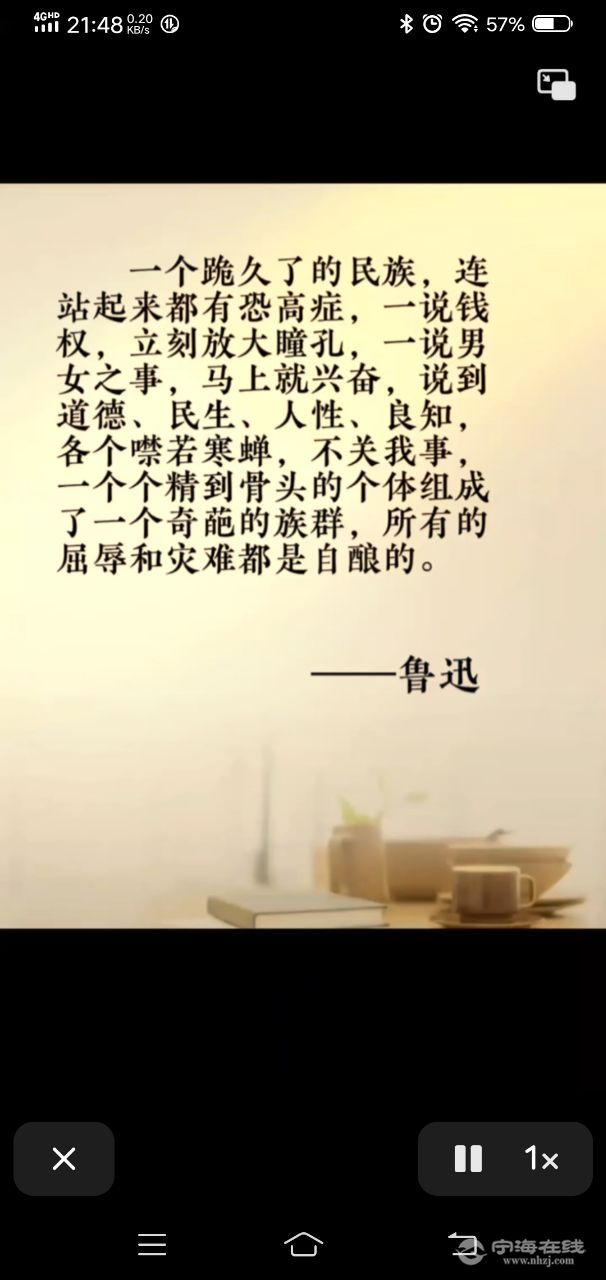 4GHD 21:48 0.20 KB/s 57%
一个跪久了的民族，连
站起来都有恐高症，一说钱
权，立刻放大瞳孔，一说男
女之事，马上就兴奋，说到
道德、民生、人性、良知，
各个噤若寒蝉，不关我事，
一个个精到骨头的个体组成
了一个奇葩的族群，所有的
屈辱和灾难都是自酿的。
——鲁迅
1×
宁海在线
www.nhzj.com